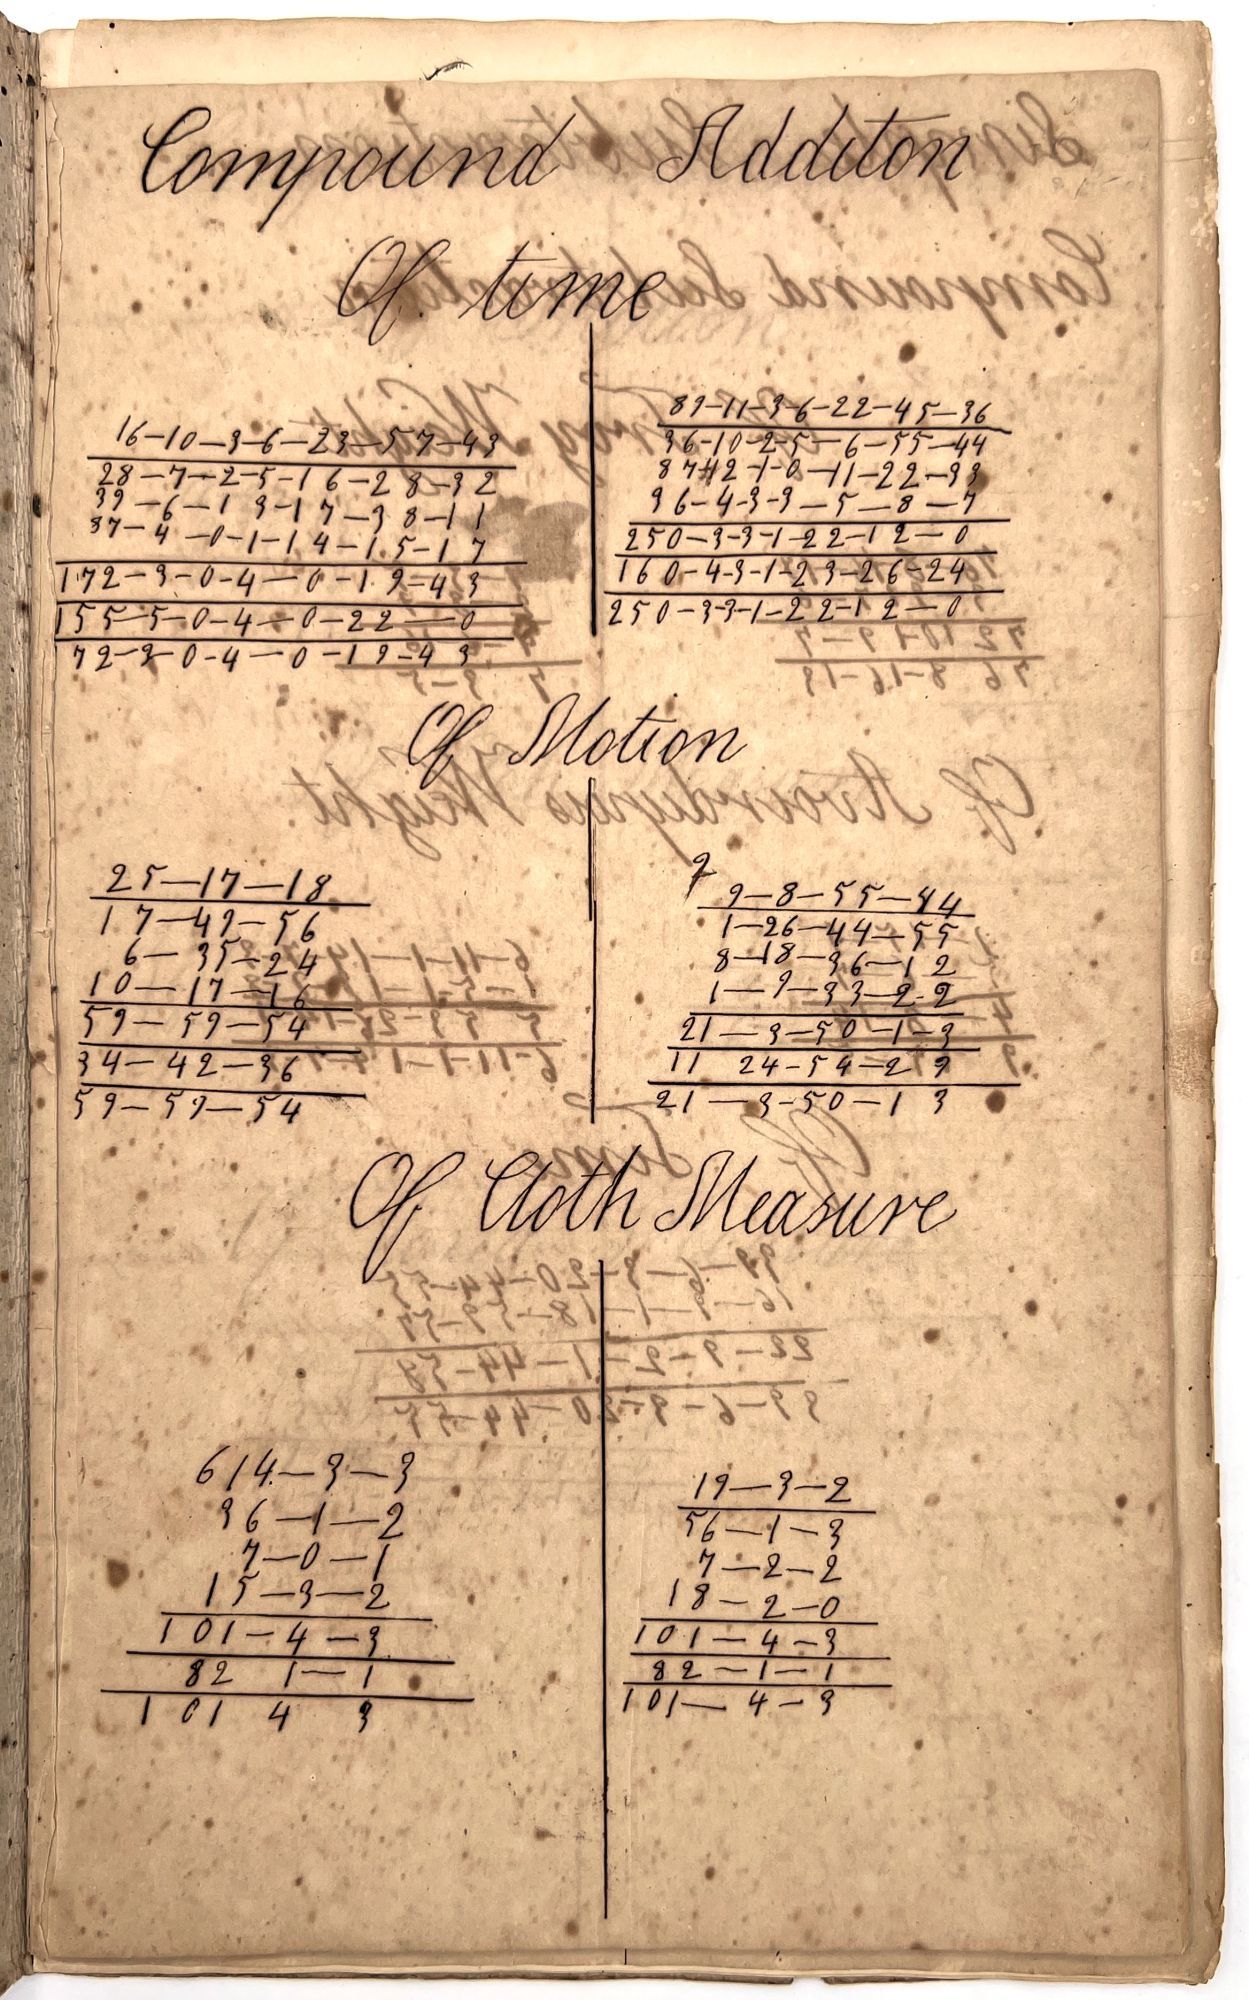 Compound Additon
Of time
16-10-3-6-23-57-43
28-7-2-5-16-28-32
39-6-1 3-17-38-11
37-4-0-1-14-15-17
172-3-0-4-0-19-43
155-5-0-4-0-22-0
72-3-0-4-0-19-43
89-11-3-6-22-45-36
36-10-2-5-6-55-44
36-4-3-3-5-8-7
250-3-3-1-22-12-0
160-4-3-1-23-26-24
250-3-3-1-22-12-0
Of Motion
25-17-18
17-49-56
6-35-24
10-17-16
59-59-54
34-42-36
59-59-54
2
9-8-55-44
1-26-44-55
8-18-36-12
1-9-33-22
21-3-50-1-3
11 24-54-29
21-3-50-1 3
Of Cloth Measure
614-3-3
36-1-2
7-0-1
15-3-2
101-4-3
82 1-1
101 4 3
19-3-2
56-1-3
7-2-2
18-2-0
101-4-3
82-1-1
101-4-3